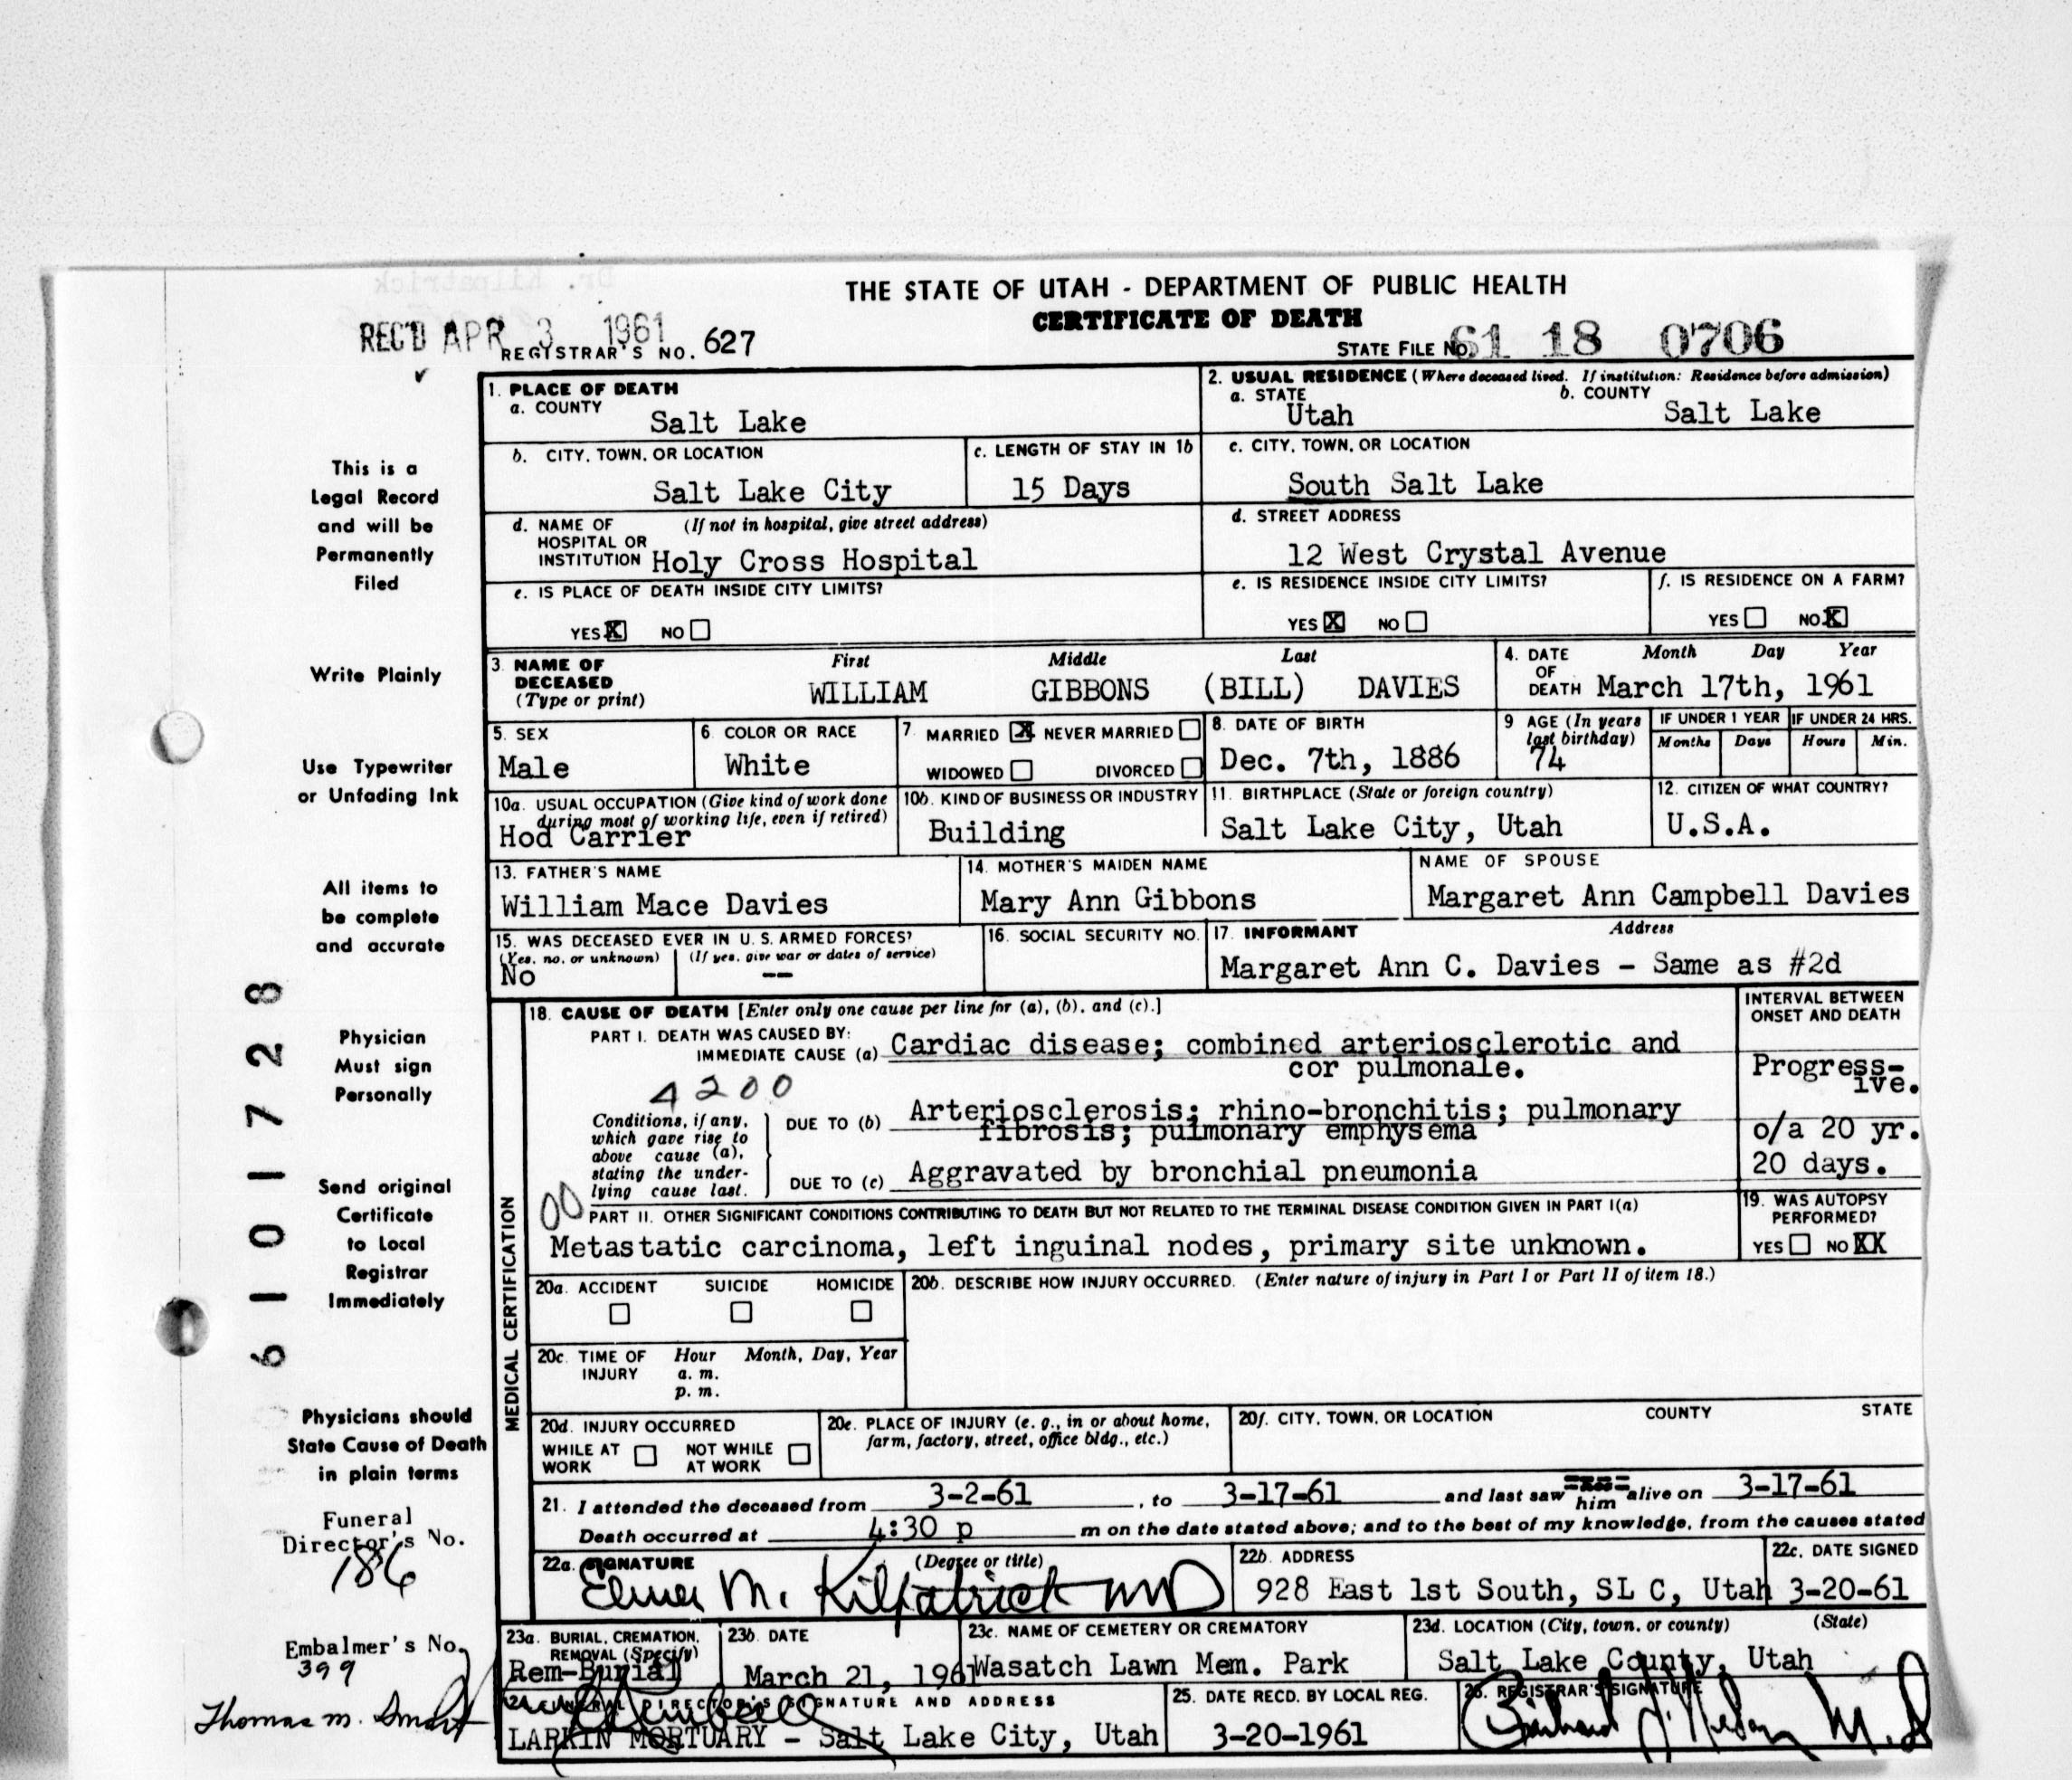 THE STATE OF UTAH - DEPARTMENT OF PUBLIC HEALTH
CERTIFICATE OF DEATH
REC'D APR 3 1961
REGISTRAR'S NO. 627
STATE FILE No. 61 18 0706
1. PLACE OF DEATH
a. COUNTY Salt Lake
2. USUAL RESIDENCE (Where deceased lived. If institution: Residence before admission)
a. STATE Utah b. COUNTY Salt Lake
b. CITY, TOWN, OR LOCATION Salt Lake City
c. LENGTH OF STAY IN 1b 15 Days
c. CITY, TOWN, OR LOCATION South Salt Lake
d. NAME OF HOSPITAL OR INSTITUTION (If not in hospital, give street address) Holy Cross Hospital
d. STREET ADDRESS 12 West Crystal Avenue
e. IS PLACE OF DEATH INSIDE CITY LIMITS?
YES X NO
e. IS RESIDENCE INSIDE CITY LIMITS?
YES X NO
f. IS RESIDENCE ON A FARM?
YES NO X
3. NAME OF DECEASED (Type or print)
First Middle Last
WILLIAM GIBBONS (BILL) DAVIES
4. DATE OF DEATH Month Day Year
March 17th, 1961
5. SEX Male
6. COLOR OR RACE White
7. MARRIED X NEVER MARRIED
WIDOWED DIVORCED
8. DATE OF BIRTH Dec. 7th, 1886
9 AGE (In years last birthday) 74
IF UNDER 1 YEAR Months Days
IF UNDER 24 HRS. Hours Min.
10a. USUAL OCCUPATION (Give kind of work done during most of working life, even if retired)
Hod Carrier
10b. KIND OF BUSINESS OR INDUSTRY Building
11. BIRTHPLACE (State or foreign country) Salt Lake City, Utah
12. CITIZEN OF WHAT COUNTRY? U.S.A.
13. FATHER'S NAME William Mace Davies
14. MOTHER'S MAIDEN NAME Mary Ann Gibbons
NAME OF SPOUSE Margaret Ann Campbell Davies
15. WAS DECEASED EVER IN U.S. ARMED FORCES?
(Yes, no, or unknown) (If yes, give war or dates of service)
No --
16. SOCIAL SECURITY NO.
17. INFORMANT Address
Margaret Ann C. Davies - Same as #2d
MEDICAL CERTIFICATION
18. CAUSE OF DEATH [Enter only one cause per line for (a), (b), and (c).]
INTERVAL BETWEEN ONSET AND DEATH
PART I. DEATH WAS CAUSED BY:
IMMEDIATE CAUSE (a) Cardiac disease; combined arteriosclerotic and
cor pulmonale.
Progress-
ive.
4200
Conditions, if any, which gave rise to above cause (a), stating the underlying cause last.
DUE TO (b) Arteriosclerosis; rhino-bronchitis; pulmonary
fibrosis; pulmonary emphysema
o/a 20 yr.
DUE TO (c) Aggravated by bronchial pneumonia
20 days.
00
PART II. OTHER SIGNIFICANT CONDITIONS CONTRIBUTING TO DEATH BUT NOT RELATED TO THE TERMINAL DISEASE CONDITION GIVEN IN PART I(a)
Metastatic carcinoma, left inguinal nodes, primary site unknown.
19. WAS AUTOPSY PERFORMED?
YES NO XX
20a. ACCIDENT SUICIDE HOMICIDE
20b. DESCRIBE HOW INJURY OCCURRED. (Enter nature of injury in Part I or Part II of item 18.)
20c. TIME OF INJURY Hour Month, Day, Year
a. m.
p. m.
20d. INJURY OCCURRED
WHILE AT WORK NOT WHILE AT WORK
20e. PLACE OF INJURY (e. g., in or about home, farm, factory, street, office bldg., etc.)
20f. CITY, TOWN, OR LOCATION COUNTY STATE
21. I attended the deceased from 3-2-61, to 3-17-61 and last saw him alive on 3-17-61
Death occurred at 4:30 p m on the date stated above; and to the best of my knowledge, from the causes stated
22a. SIGNATURE (Degree or title)
Elmer M. Kilpatrick MD
22b. ADDRESS 928 East 1st South, SL C, Utah
22c. DATE SIGNED 3-20-61
23a. BURIAL, CREMATION, REMOVAL (Specify) Rem-Burial
23b. DATE March 21, 1961
23c. NAME OF CEMETERY OR CREMATORY Wasatch Lawn Mem. Park
23d. LOCATION (City, town, or county) (State)
Salt Lake County, Utah
24. FUNERAL DIRECTOR'S SIGNATURE AND ADDRESS
LARKIN MORTUARY - Salt Lake City, Utah
25. DATE RECD. BY LOCAL REG. 3-20-1961
26. REGISTRAR'S SIGNATURE
M.D
This is a
Legal Record
and will be
Permanently
Filed
Write Plainly
Use Typewriter
or Unfading Ink
All items to
be complete
and accurate
Physician
Must sign
Personally
Send original
Certificate
to Local
Registrar
Immediately
Physicians should
State Cause of Death
in plain terms
Funeral
Director's No.
186
Embalmer's No.
399
Thomas M. Smart
6101728